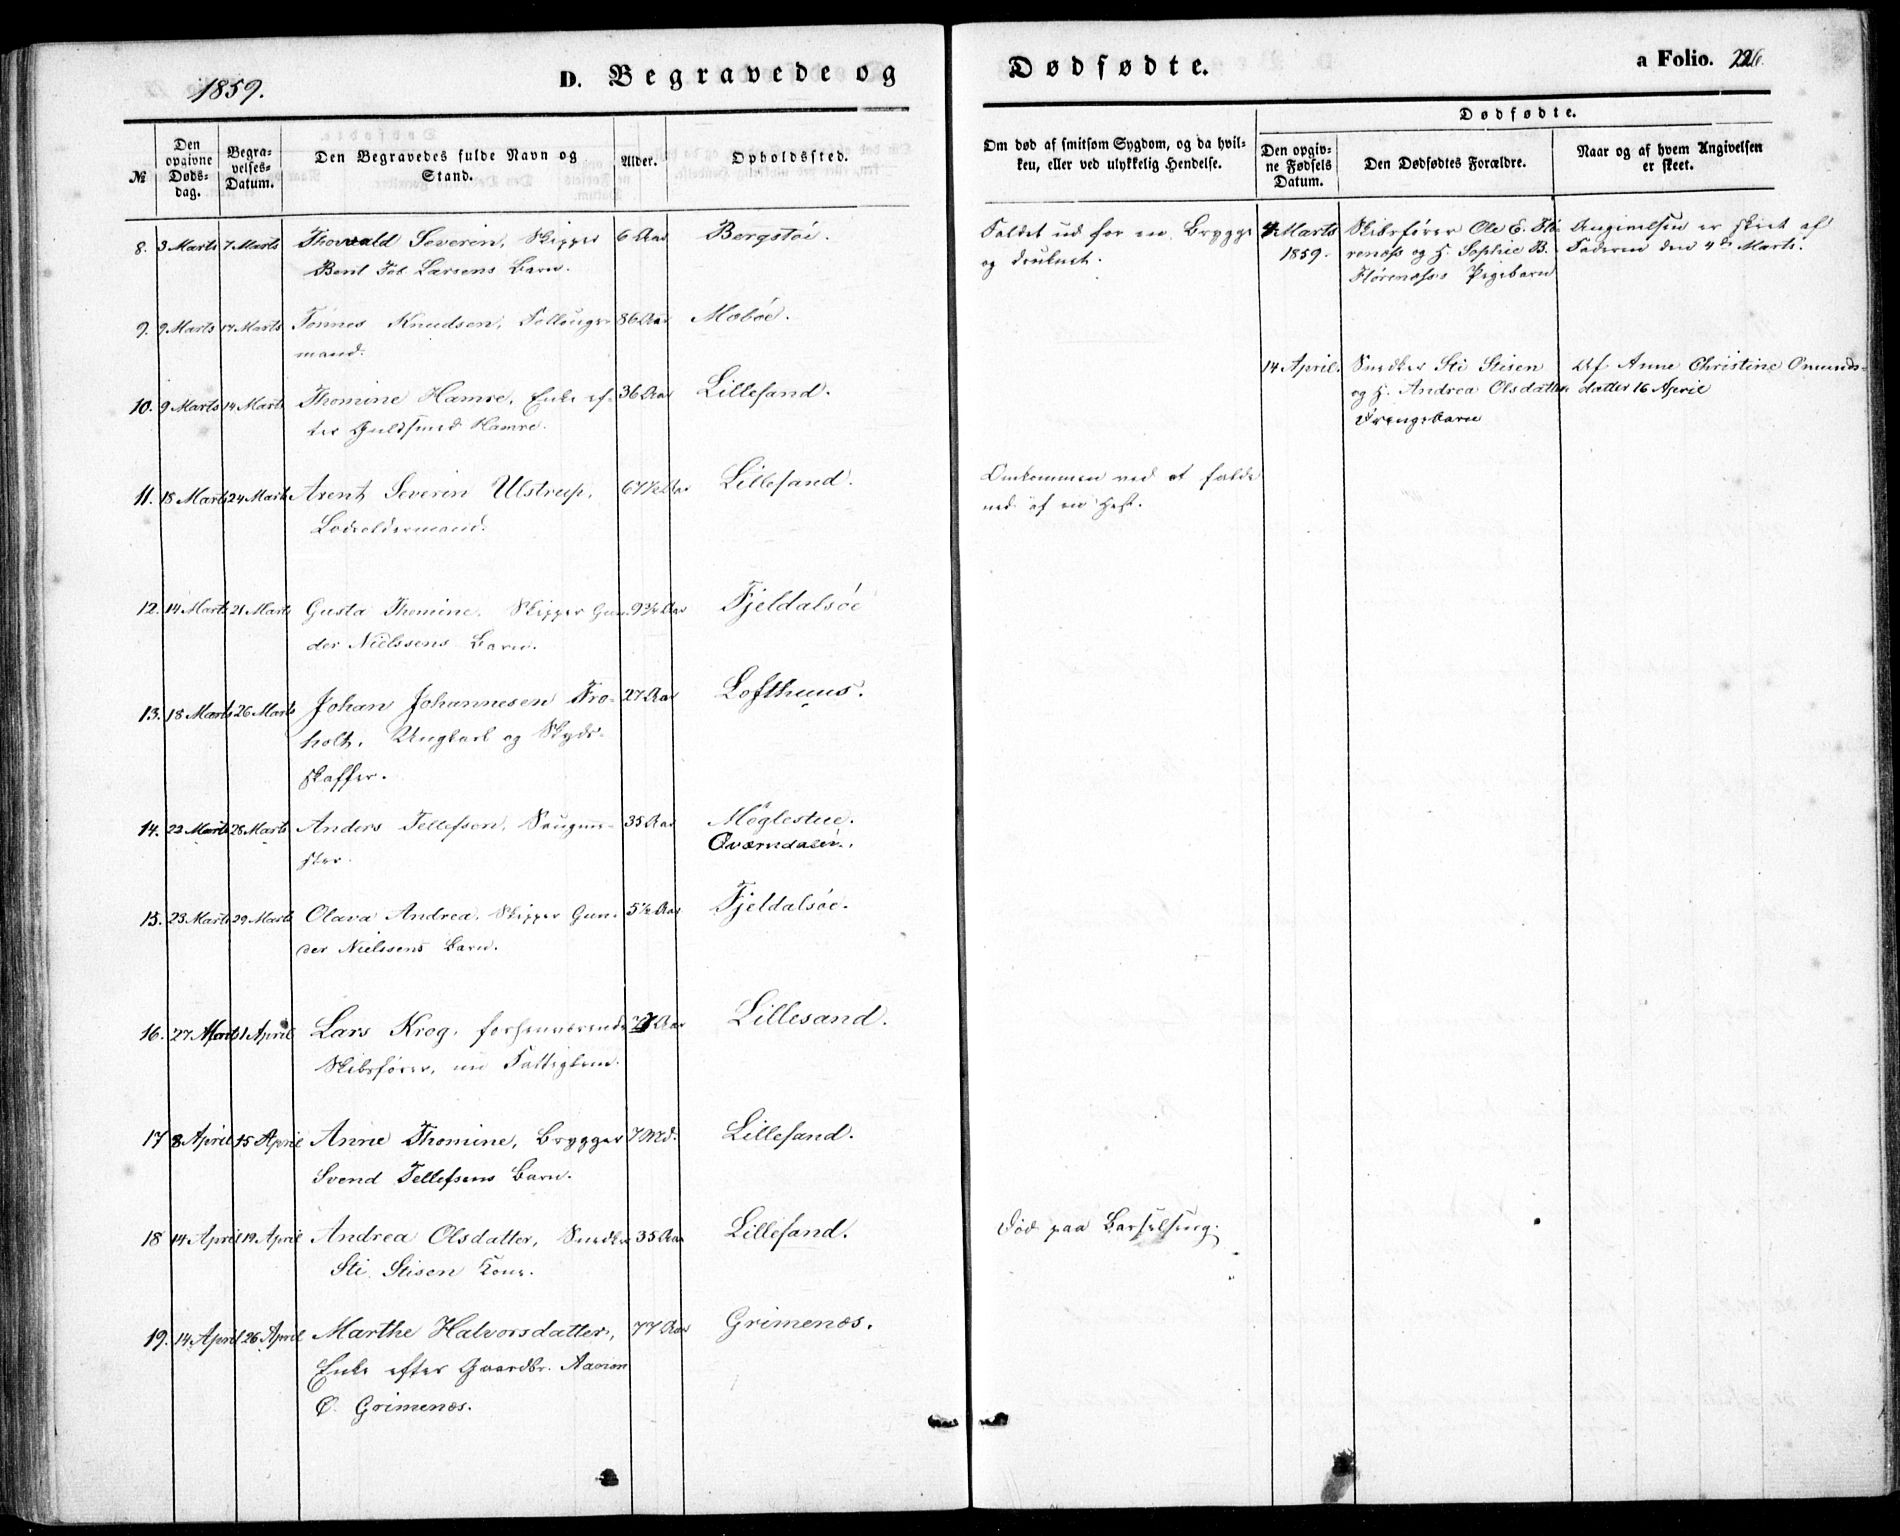 1859.
D. Begravede og
Dødfødte.
a Folio. 226.
№
Den opgivne Døds-dag.
Begra-velses-Datum.
Den Begravedes fulde Navn og Stand.
Alder.
Opholdssted.
Om død af smitsom Sygdom, og da hvil-ken, eller ved ulykkelig Hendelse.
Dødfødte.
Den opgiv-ne Fødsels Datum.
Den Dødfødtes Forældre.
Naar og af hvem Angivelsen er skeet.
8. 3 Marts 7 Marts Thorvald Severin, Skipper 6 Aar Bergstøi.
Bent Job Larsens Barn.
Faldet ud for en Brygge
og druknet.
4 Marts Skibsfører Ole E. Flö- Angivelsen er skeet af
1859. renæss og H. Sophie B. Faderen den 4de Marts.
Flørenæss's Pigebarn
9. 9 Marts 17 Marts Tønnes Knudsen, Follouger- 86 Aar Møbøe.
mand.
10. 9 Marts 14 Marts Thomine Hamre, Enke ef- 36 Aar Lillesand.
ter Guldsmed Hamre.
14 April. Snedker Sti Stisen Af Anne Christine Omunds-
og H. Andrea Olsdatter datter 16 April
Drengebarn
11. 18 Marts 24 Marts Arent Severin Ulstrup, 67½ Aar Lillesand.
Lodsoldermand.
Omkommen ved at falde
ned af en Hest.
12. 14 Marts 21 Marts Gusta Thomine, Skipper Gun- 9¾ Aar Fjeldalsøe
der Nielssens Barn.
13. 18 Marts 26 Marts Johan Johannesen Fro- 27 Aar Lofthuus.
holt, Ungkarl og Skyds-
skaffer.
14. 22 Marts 28 Marts Anders Tellefsen, Saugme- 35 Aar Møglestue.
ster. Qværndalen.
15. 23 Marts 29 Marts Olava Andrea, Skipper Gun- 5½ Aar Fjeldalsøe.
der Nielssens Barn.
16. 27 Marts 1 April Lars Krog, forhenværende Aar Lillesand.
Skibsfører, nu Fattiglem.
17 8 April 15 April Anne Thomine, Brygger 7 Md. Lillesand.
Svend Tellefsens Barn.
18 14 April 19 April Andrea Olsdatter, Snedker 35 Aar Lillesand.
Sti Stisen Kone.
Død paa Barselseng.
19. 14 April 26 April Marthe Halvorsdatter, 77 Aar Grimenæs.
Enke efter Gaardbr. Aanon
O. Grimenæs.